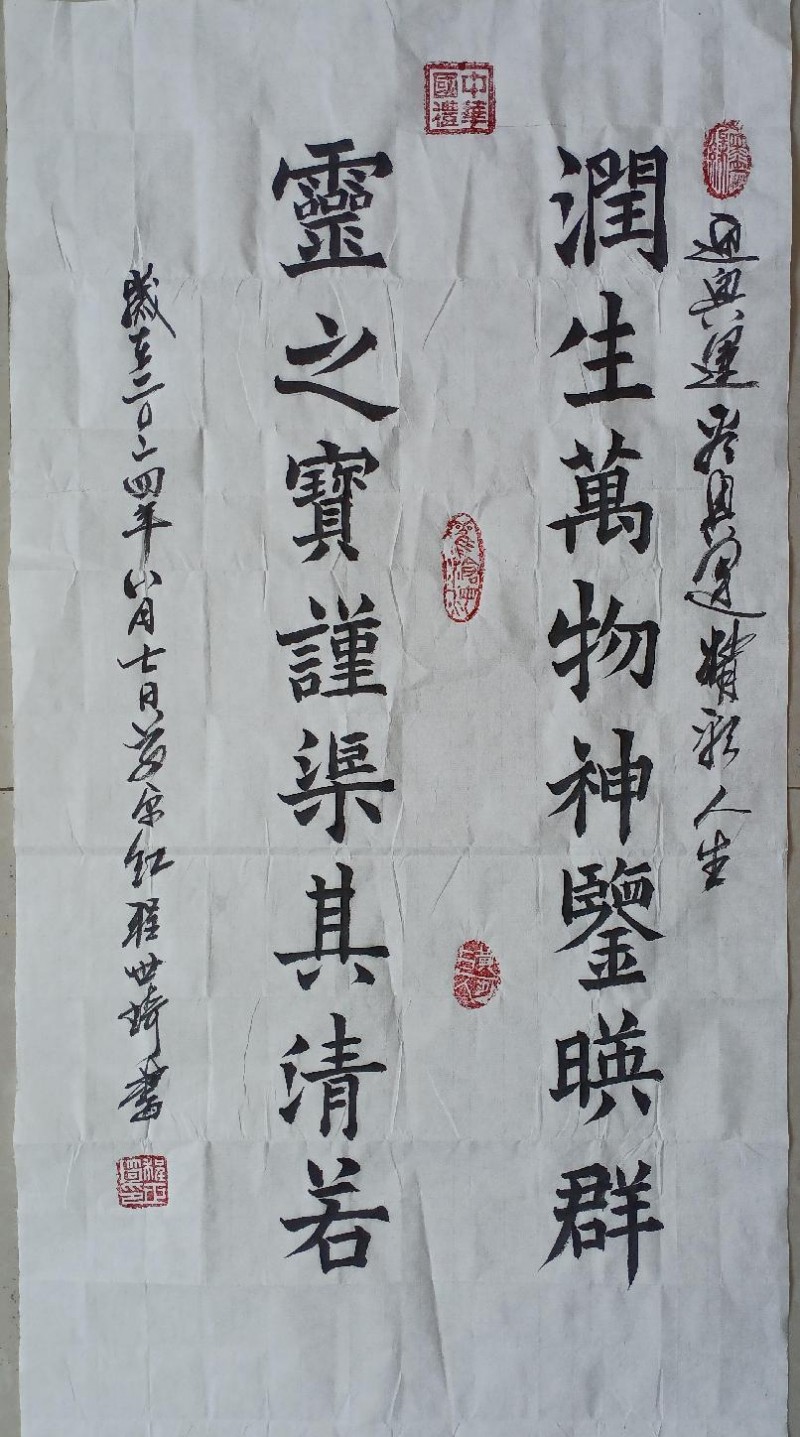 迎奥运 兴奥运精彩人生
潤生萬物神鑒暎群
靈之寶謹渠其清若
歲在二〇二四年八月七日 程世琦書
中華國禮